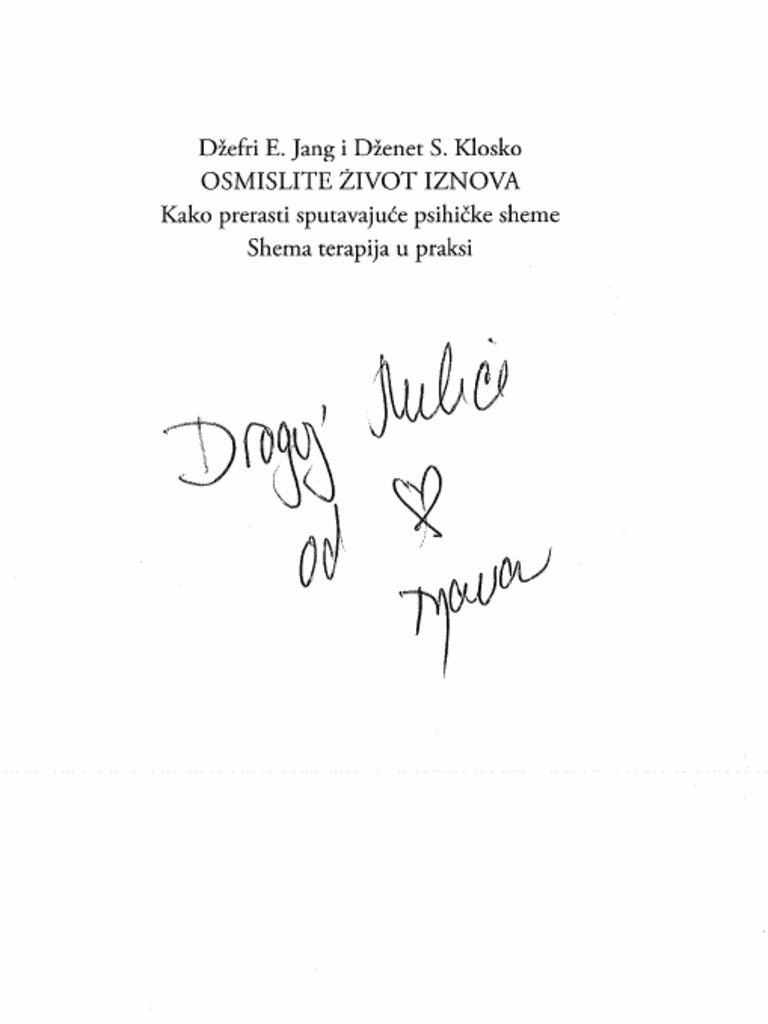 Džefri E. Jang i Dženet S. Klosko
OSMISLITE ŽIVOT IZNOVA
Kako prerasti sputavajuće psihičke sheme
Shema terapija u praksi
Dragoj
od